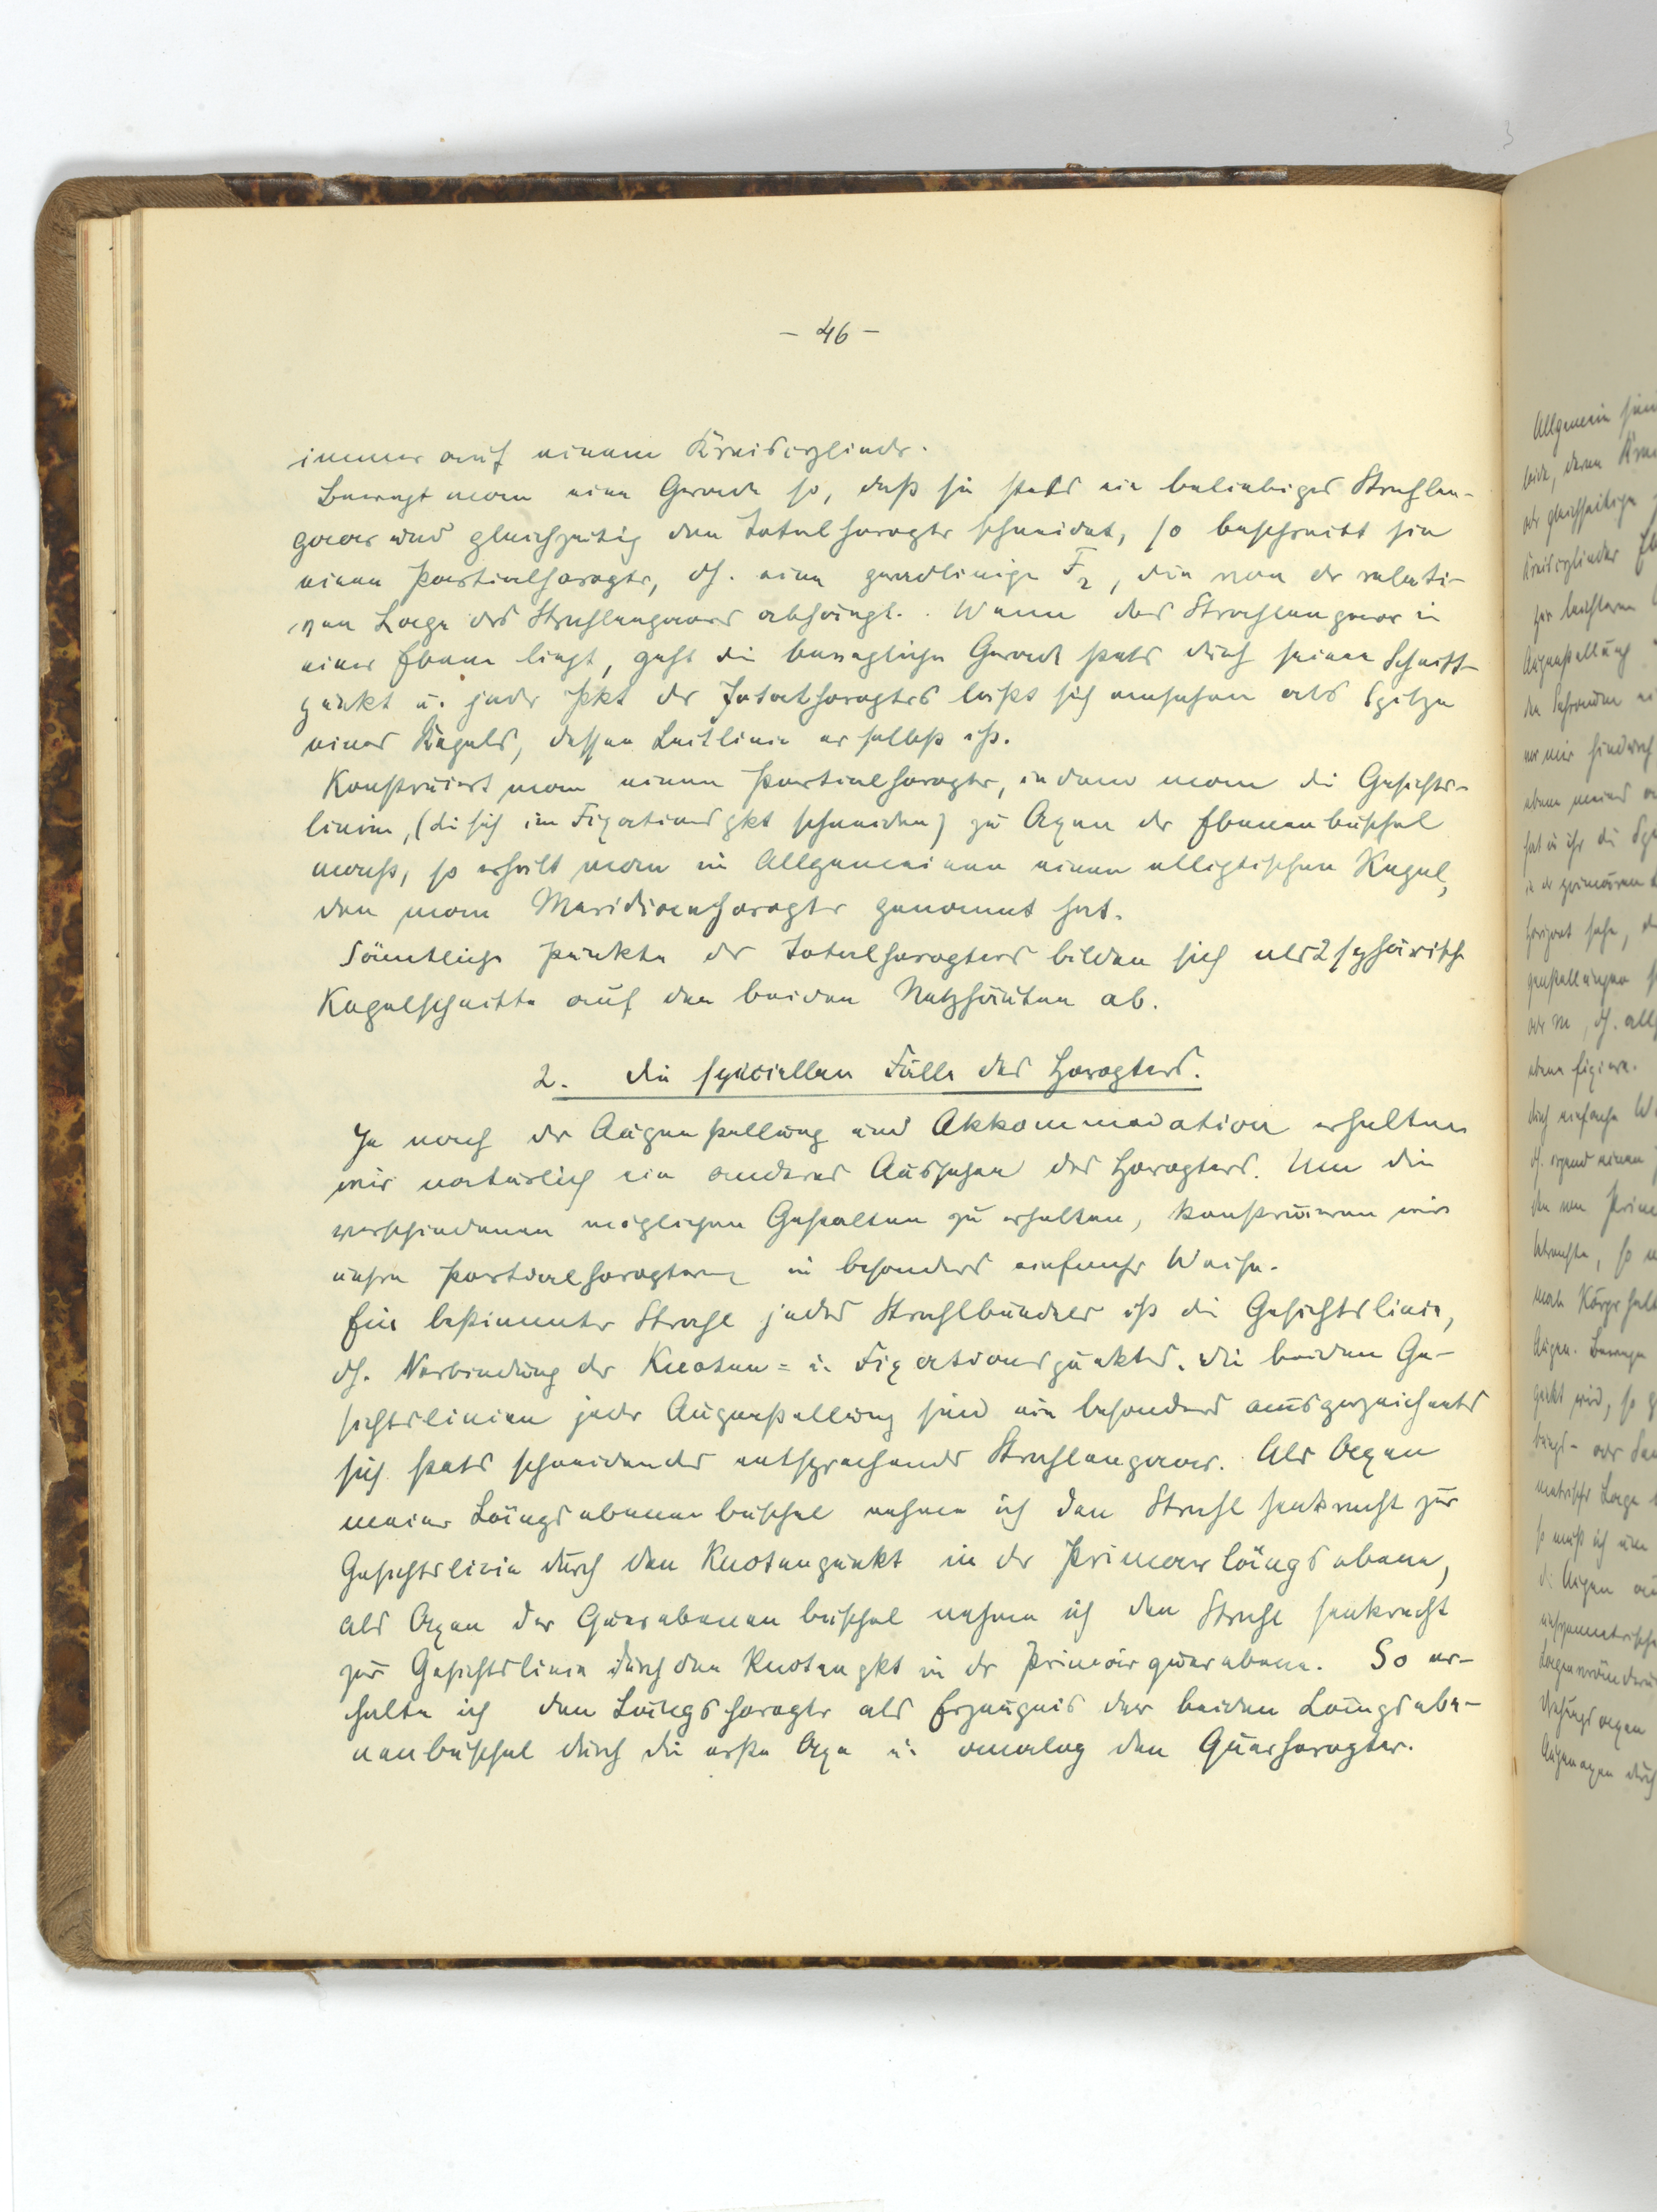 - 46 -
immer auf einem Kreiscylinder.
Bewegt man eine Gerade so, daß sie stets ein beliebiges Strahlen-
paar und gleichzeitig den Totalhoropter schneidet, so beschreibt sie
einen Partialhoropter, dh. eine geradlinige F2, die von der relati-
ven Lage des Strahlenpaares abhängt. Wenn das Strahlenpaar in
einer Ebene liegt, geht die bewegliche Gerade stets durch seinen Schnitt-
punkt u. jeder Pkt des Totalhoropters läßt sich ansehen als Spitze
eines Kegels, dessen Leitlinie er selbst ist.
Konstruiert man einen Partialhoropter, indem man die Gesichts-
linien, (die sich im Fixationspkt schneiden) zu Axen der Ebenenbüschel
macht, so erhält man im Allgemeinen einen elliptischen Kegel,
den man Meridianhoropter genannt hat.
Sämtliche Punkte des Totalhoropters bilden sich als 2 sphärische
Kegelschnitte auf den beiden Netzhäuten ab.
2. Die speciellen Fälle des Horopters.
Je nach der Augenstellung und Akkommodation erhalten
wir natürlich ein anderes Aussehen des Horopters. Um die
verschiedenen möglichen Gestalten zu erhalten, konstruieren wir
unsre Partialhoropteren in besonders einfacher Weise.
Ein bestimmter Strahl jedes Strahlbündels ist die Gesichtslinie,
dh. Verbindung des Knoten= u. Fixationspunktes. Die beiden Ge-
sichtslinien jeder Augenstellung sind ein besonders ausgezeichnetes
sich stets schneidendes entsprechendes Strahlenpaar. Als Axen
meiner Längsebenenbüschel nehme ich den Strahl senkrecht zur
Gesichtslinie durch den Knotenpunkt in der Primärlängsebene,
als Axen der Querebenenbüschel nehme ich den Strahl senkrecht
zur Gesichtslinie durch den Knotenpkt in der Primärquerebene. So er-
halte ich den Längshoropter als Erzeugnis der beiden Längsebe-
nenbüschel durch die erste Axe u. analog den Querhoropter.